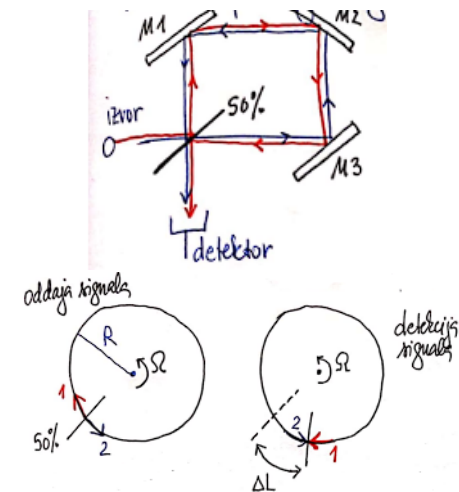 M1
M2
izvor
50%
M3
detektor
oddaja signala
R
Ω
1
50%
2
detekcija
signala
Ω
2
1
ΔL